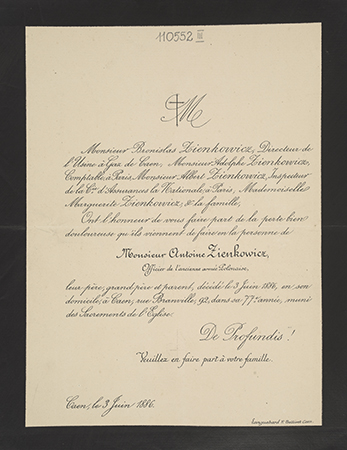 110552 III
M
Monsieur Bronislas Zienkowicz, Directeur de
l'Usine à Gaz de Caen, Monsieur Adolphe Zienkowicz,
Comptable, à Paris, Monsieur Albert Zienkowicz, Inspecteur
de la Cie d'Assurances la Nationale, à Paris, Mademoiselle
Marguerite Zienkowicz, & la famille,
Ont l'honneur de vous faire part de la perte bien
douloureuse qu'ils viennent de faire en la personne de
Monsieur Antoine Zienkowicz,
Officier de l'ancienne armée Polonaise,
leur père, grand père et parent, décédé le 3 Juin 1886, en son
domicile, à Caen, rue Branville, 92, dans sa 77e année, muni
des Sacrements de l'Eglise.
De Profundis!
Veuillez en faire part à votre famille.
Caen, le 3 Juin 1886.